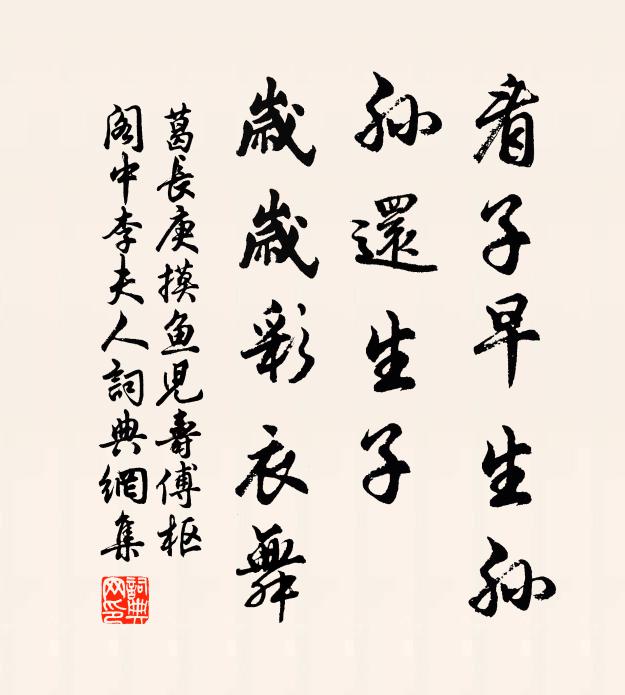 看子早生孙
孙還生子
歲歲彩衣舞
葛長庚摸鱼児壽傅枢
阁中李夫人詞典網集
詞典网印